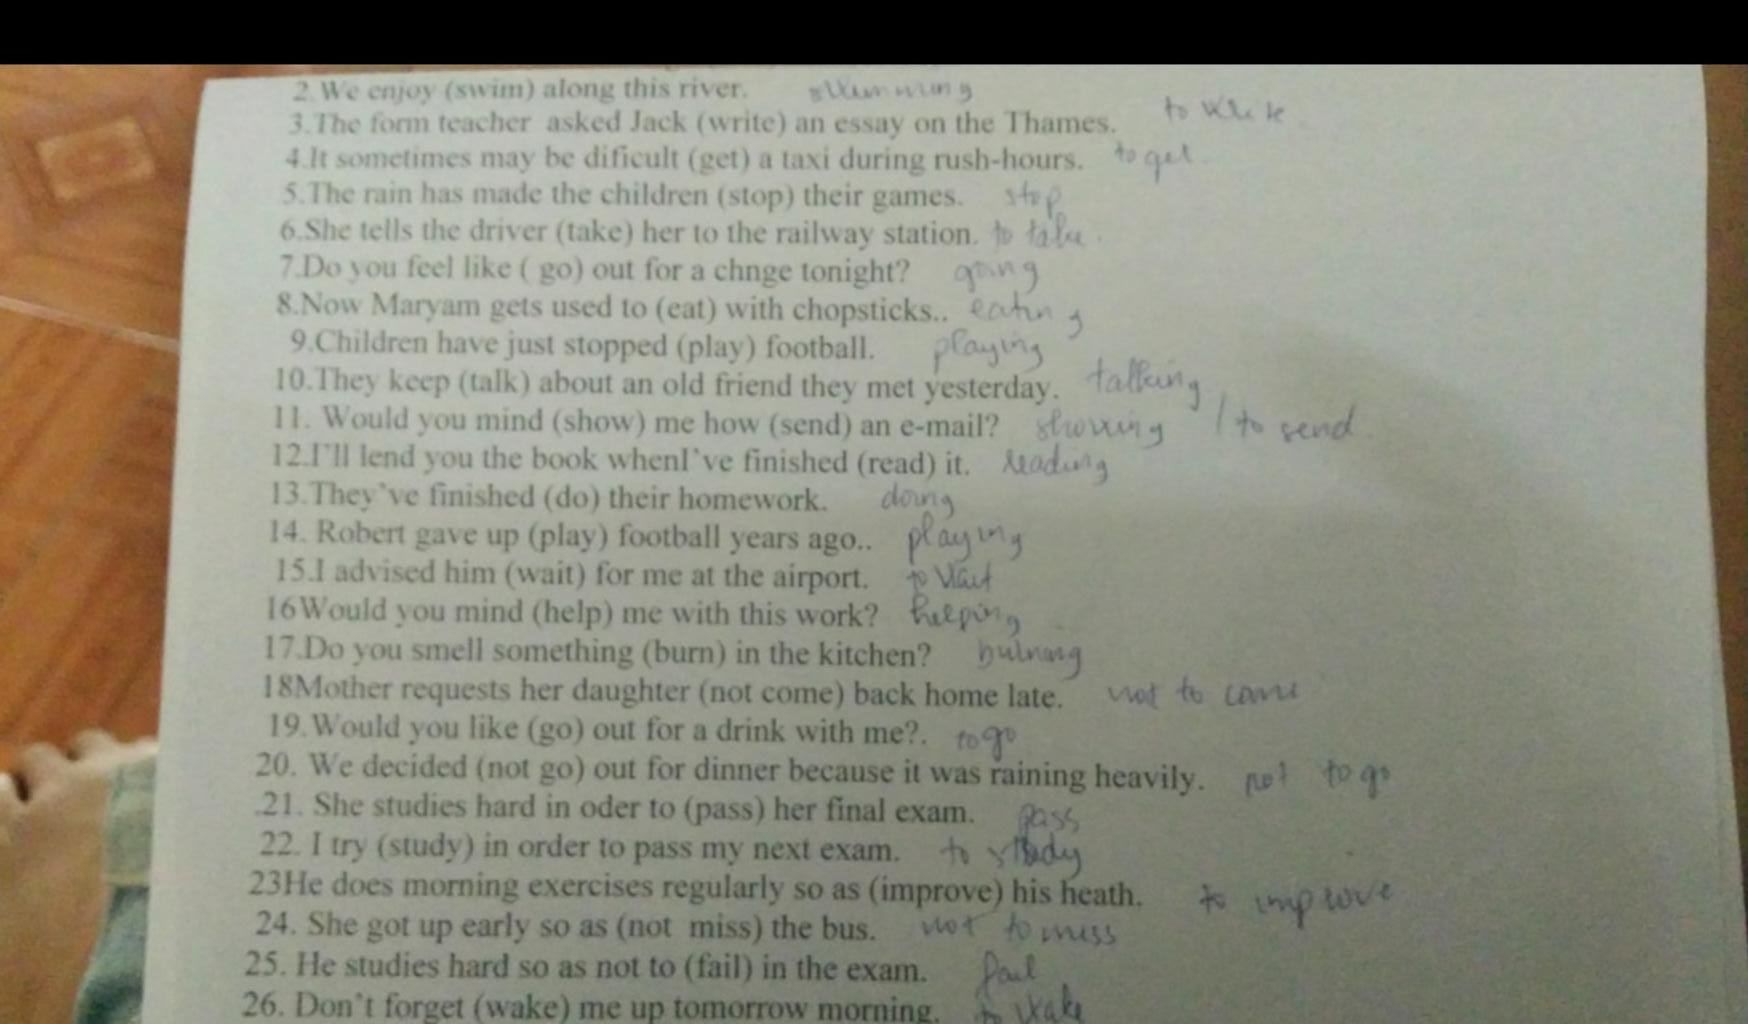 2.We enjoy (swim) along this river. swimming
3.The form teacher asked Jack (write) an essay on the Thames. to write
4.It sometimes may be dificult (get) a taxi during rush-hours. to get
5.The rain has made the children (stop) their games. stop
6.She tells the driver (take) her to the railway station. to take.
7.Do you feel like ( go) out for a chnge tonight? going
8.Now Maryam gets used to (eat) with chopsticks.. eating
9.Children have just stopped (play) football. playing
10.They keep (talk) about an old friend they met yesterday. talking
11. Would you mind (show) me how (send) an e-mail? showing / to send
12.I'll lend you the book whenI've finished (read) it. reading
13.They've finished (do) their homework. doing
14. Robert gave up (play) football years ago.. playing
15.I advised him (wait) for me at the airport. to wait
16Would you mind (help) me with this work? helping
17.Do you smell something (burn) in the kitchen? burning
18Mother requests her daughter (not come) back home late. not to come
19.Would you like (go) out for a drink with me?. to go
20. We decided (not go) out for dinner because it was raining heavily. not to go
.21. She studies hard in oder to (pass) her final exam. pass
22. I try (study) in order to pass my next exam. to study
23He does morning exercises regularly so as (improve) his heath. to improve
24. She got up early so as (not miss) the bus. not to miss
25. He studies hard so as not to (fail) in the exam. fail
26. Don't forget (wake) me up tomorrow morning. to wake